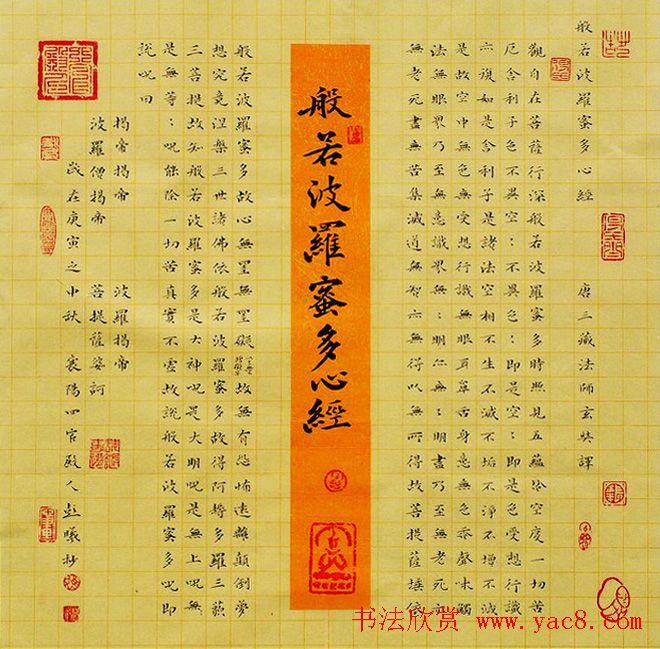 般若波羅蜜多心經 唐三藏法師玄奘譯
觀自在菩薩行深般若波羅蜜多時照見五蘊皆空度一切苦
厄舍利子色不異空：不異色：即是空：即是色受想行識
亦復如是舍利子是諸法空相不生不滅不垢不淨不增不減
是故空中無色無受想行識無眼耳鼻舌身意無色香聲味觸
法無眼界乃至無意識界無：明亦無：明盡乃至無老死亦
無老死盡無苦集滅道無智亦無得以無所得故菩提薩埵依
般若波羅蜜多心經
般若波羅蜜多故心無罣無罣礙故無有恐怖遠離顛倒夢
想究竟涅槃三世諸佛依般若波羅蜜多故得阿耨多羅三藐
三菩提故知般若波羅蜜多是大神呪是大明呪是無上呪無
是無等：呪能除一切苦真實不虛故說般若波羅蜜多呪即
說呪曰
揭帝揭帝 波羅揭帝
波羅僧揭帝 菩提薩婆訶
歲在庚寅之中秋 襄陽四官殿人彭曦抄
书法欣赏 www.yac8.com